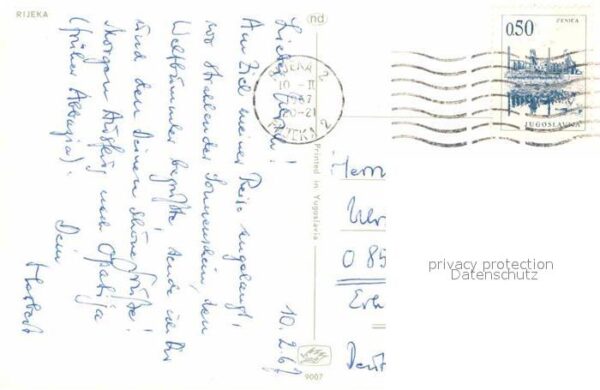 RIJEKA
nd
10.2.67
Lieber
Am Ziel meiner Reise angelangt,
wo strahlender Sonnenschein den
Weltbummler begrüßte, sende ich Dir
und den Deinen schöne Grüße!
Morgen Ausflug nach Opatija
(früher Abbazia).
Dein
Herbert
Printed in Yugoslavia
9007
RIJEKA 2
10-II
67
20-21
RIJEKA 2
0.50
ZENICA
JUGOSLAVIJA
Herrn
Wer
0 85
Erl
privacy protection
Datenschutz